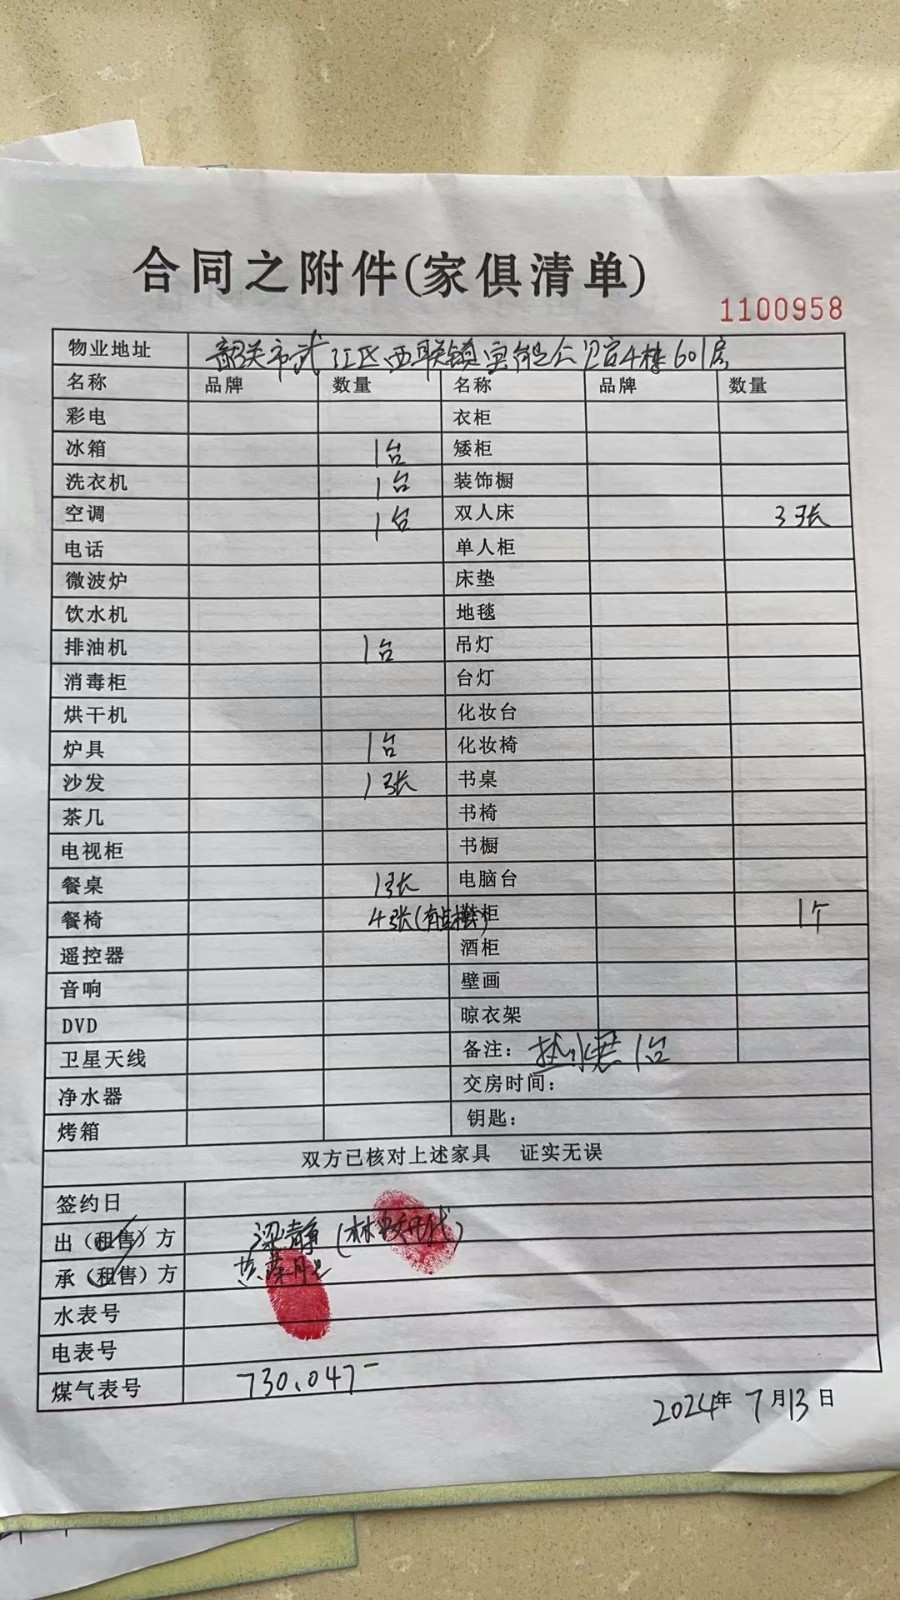 合同之附件(家俱清单)
1100958
物业地址 韶关市武江区西联镇宝能公馆4栋601房
名称 品牌 数量 名称 品牌 数量
彩电 衣柜
冰箱 1台 矮柜
洗衣机 1台 装饰橱
空调 1台 双人床 3张
电话 单人柜
微波炉 床垫
饮水机 地毯
排油机 1台 吊灯
消毒柜 台灯
烘干机 化妆台
炉具 1台 化妆椅
沙发 1张 书桌
茶几 书椅
电视柜 书橱
餐桌 1张 电脑台
餐椅 4张 鞋柜 1个
遥控器 酒柜
音响 壁画
DVD 晾衣架
卫星天线 备注：热水器1台
净水器 交房时间：
烤箱 钥匙：
双方已核对上述家具 证实无误
签约日
出（租售）方 梁静
承（租售）方
水表号
电表号
煤气表号 730.047
2024年7月13日